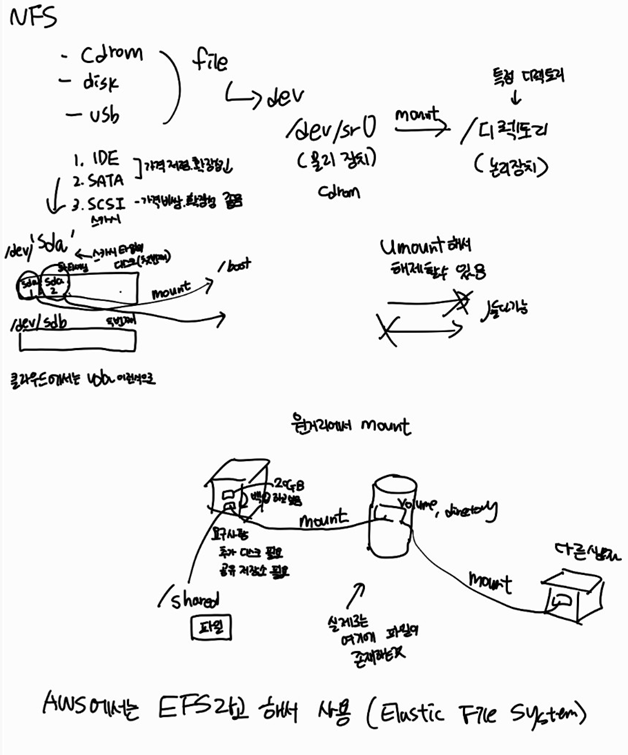 NFS
- Cdrom
- disk
- usb
file
dev
/dev/sr0
(물리 장치)
cdrom
mount
특정 디렉토리
/디렉토리
(논리장치)
1. IDE
2. SATA
가격저렴.확장성
3. SCSI -가격비쌈.확장성 좋음
스카시
/dev/'sda'
스카시 타입의
디스크(첫번째)
sda
1
sda
2
mount
/boot
/dev/sdb
두번째
클라우드에서는 vda 이런식으로
umount해서
해제할수 있음
둘다가능
원거리에서 mount
20GB
요구사항
추가 디스크 필요
공유 저장소 필요
mount
volume, directory
/shared
파일
실제로는
여기에 파일이
존재하는것
mount
다른
AWS에서는 EFS라고 해서 사용 (Elastic File System)